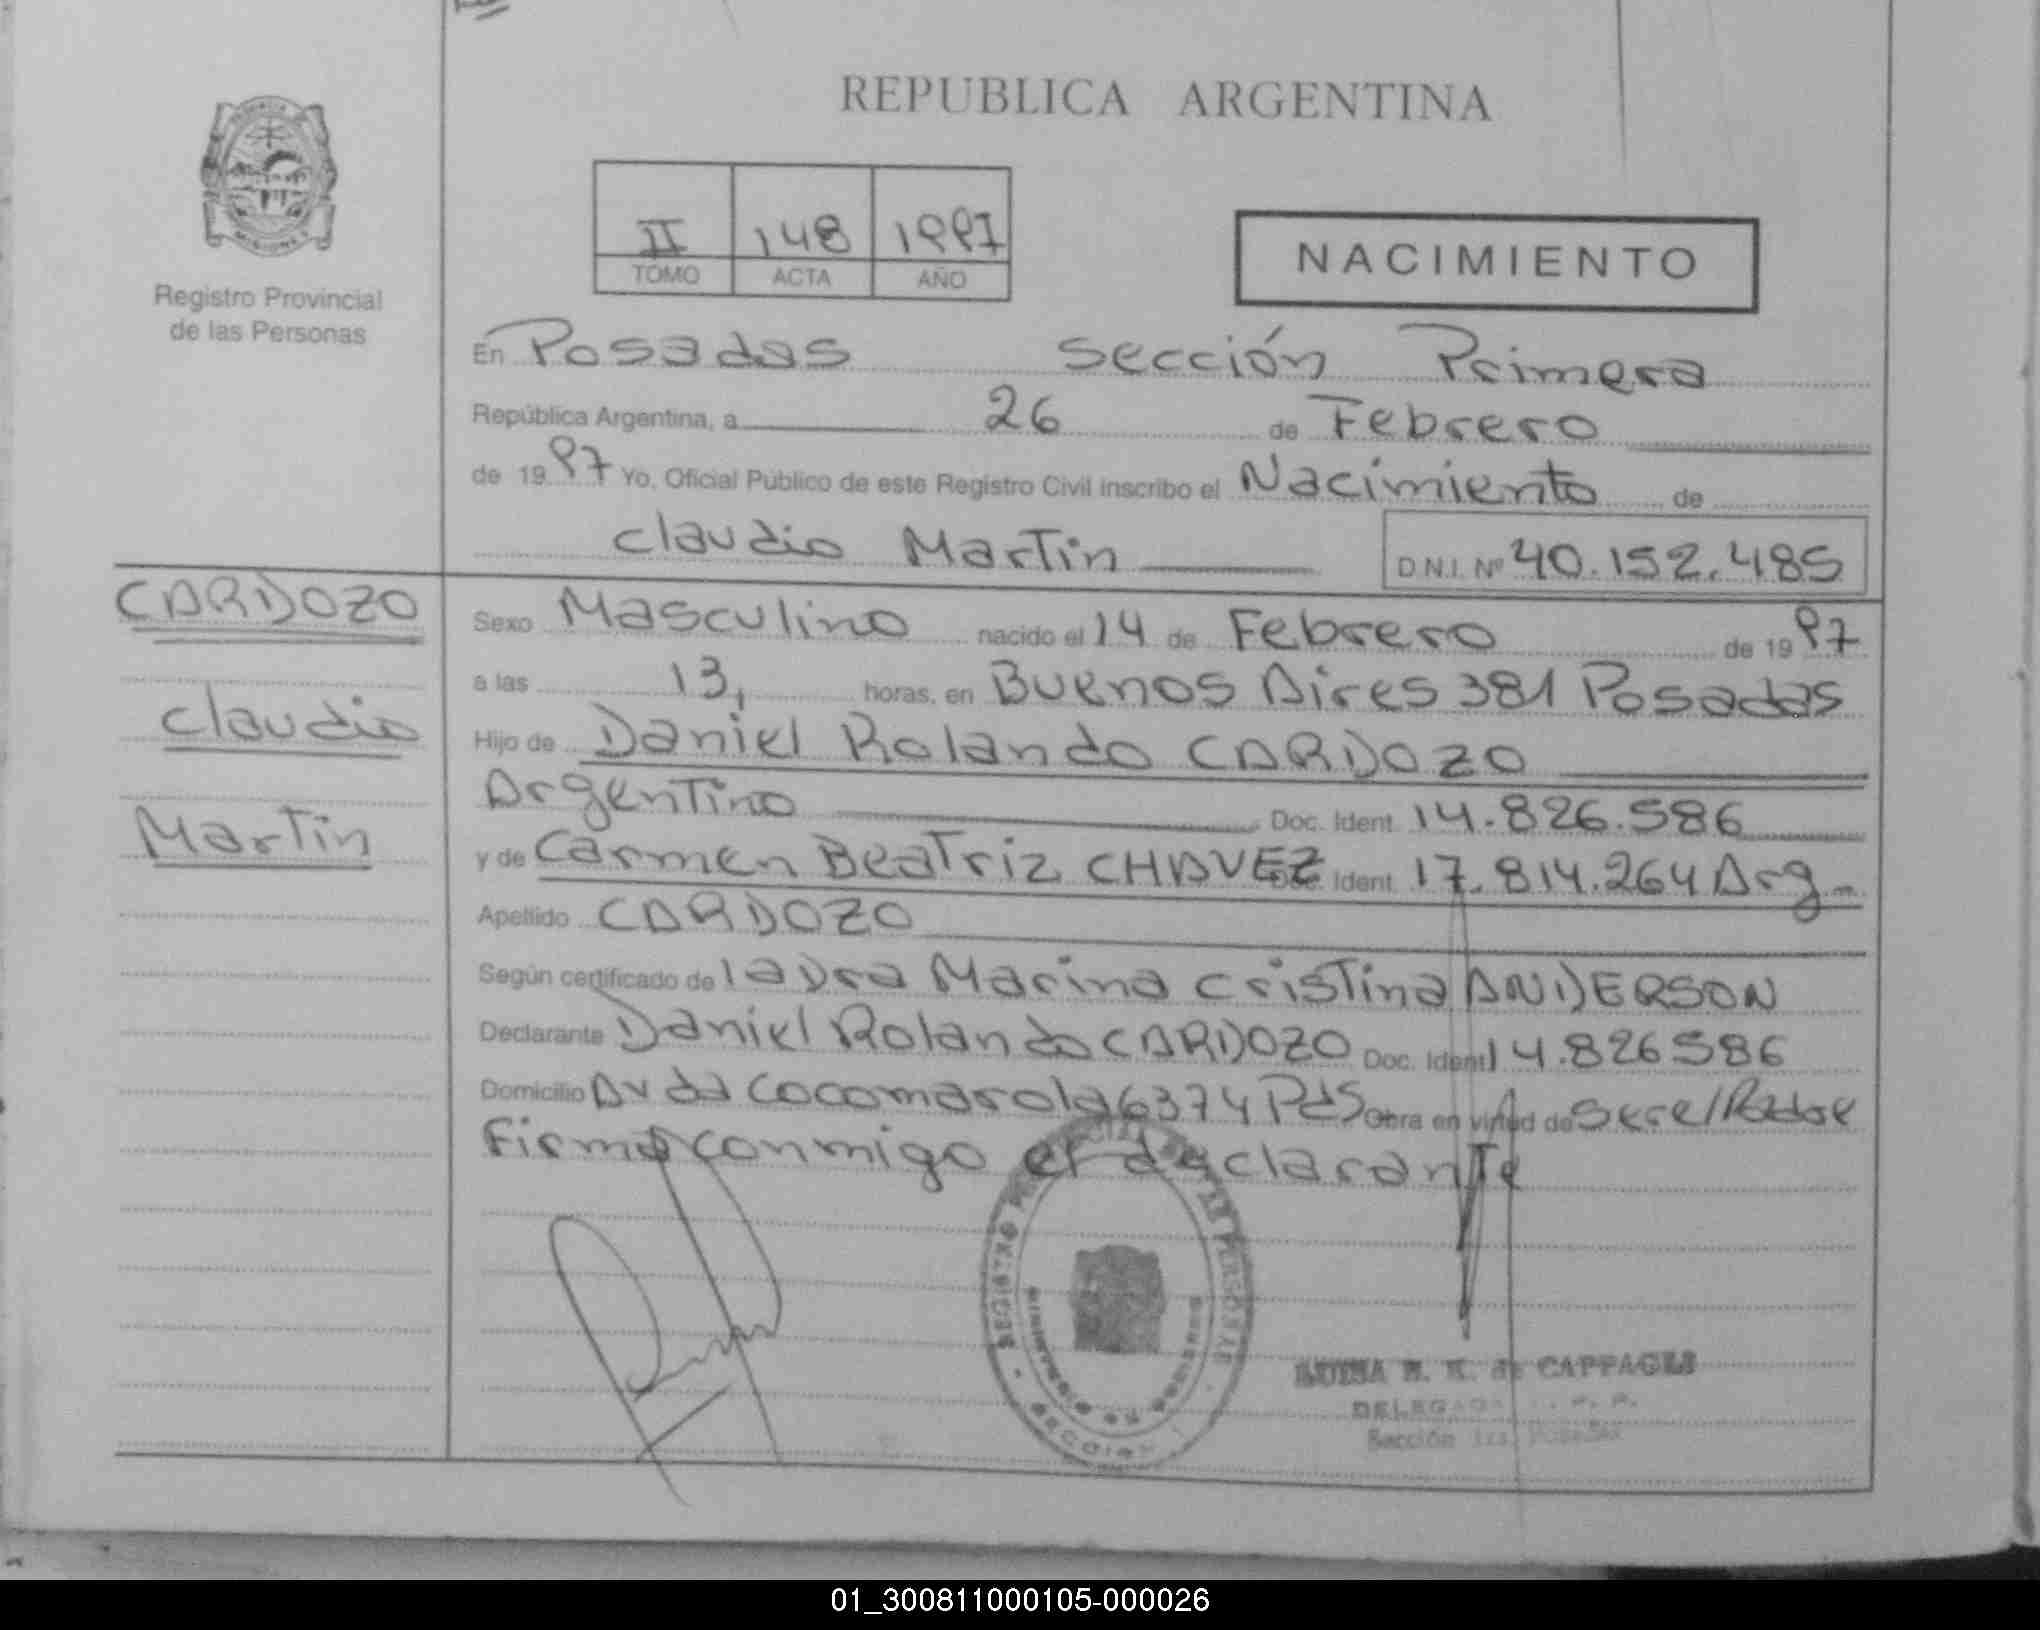 REPUBLICA ARGENTINA
MISIONES
Registro Provincial
de las Personas
II 148 1997
TOMO ACTA AÑO
NACIMIENTO
En Posadas Sección Primera
República Argentina, a 26 de Febrero
de 1997 Yo, Oficial Público de este Registro Civil inscribo el Nacimiento de
Claudio Martin D.N.I. Nº 40.152.485
CARDOZO
Claudio
Martin
Sexo Masculino nacido el 14 de Febrero de 1997
a las 13, horas, en Buenos Aires 381 Posadas
Hijo de Daniel Rolando CARDOZO
Argentino Doc. Ident. 14.826.586
y de Carmen Beatriz CHAVEZ Doc. Ident. 17.814.264 Arg.
Apellido CARDOZO
Según certificado de Laura Marina Cristina ANDERSON
Declarante Daniel Rolando CARDOZO Doc. Ident. 14.826586
Domicilio Avda Cocomarola 6374 Pds Obra en virtud de
Firma conmigo el declarante
REGISTRO DE LAS PERSONAS
MINISTERIO DE GOBIERNO
SECCION
DE CAPPAGLI
DELEGADA
Sección 1ra. Posadas
01_300811000105-000026